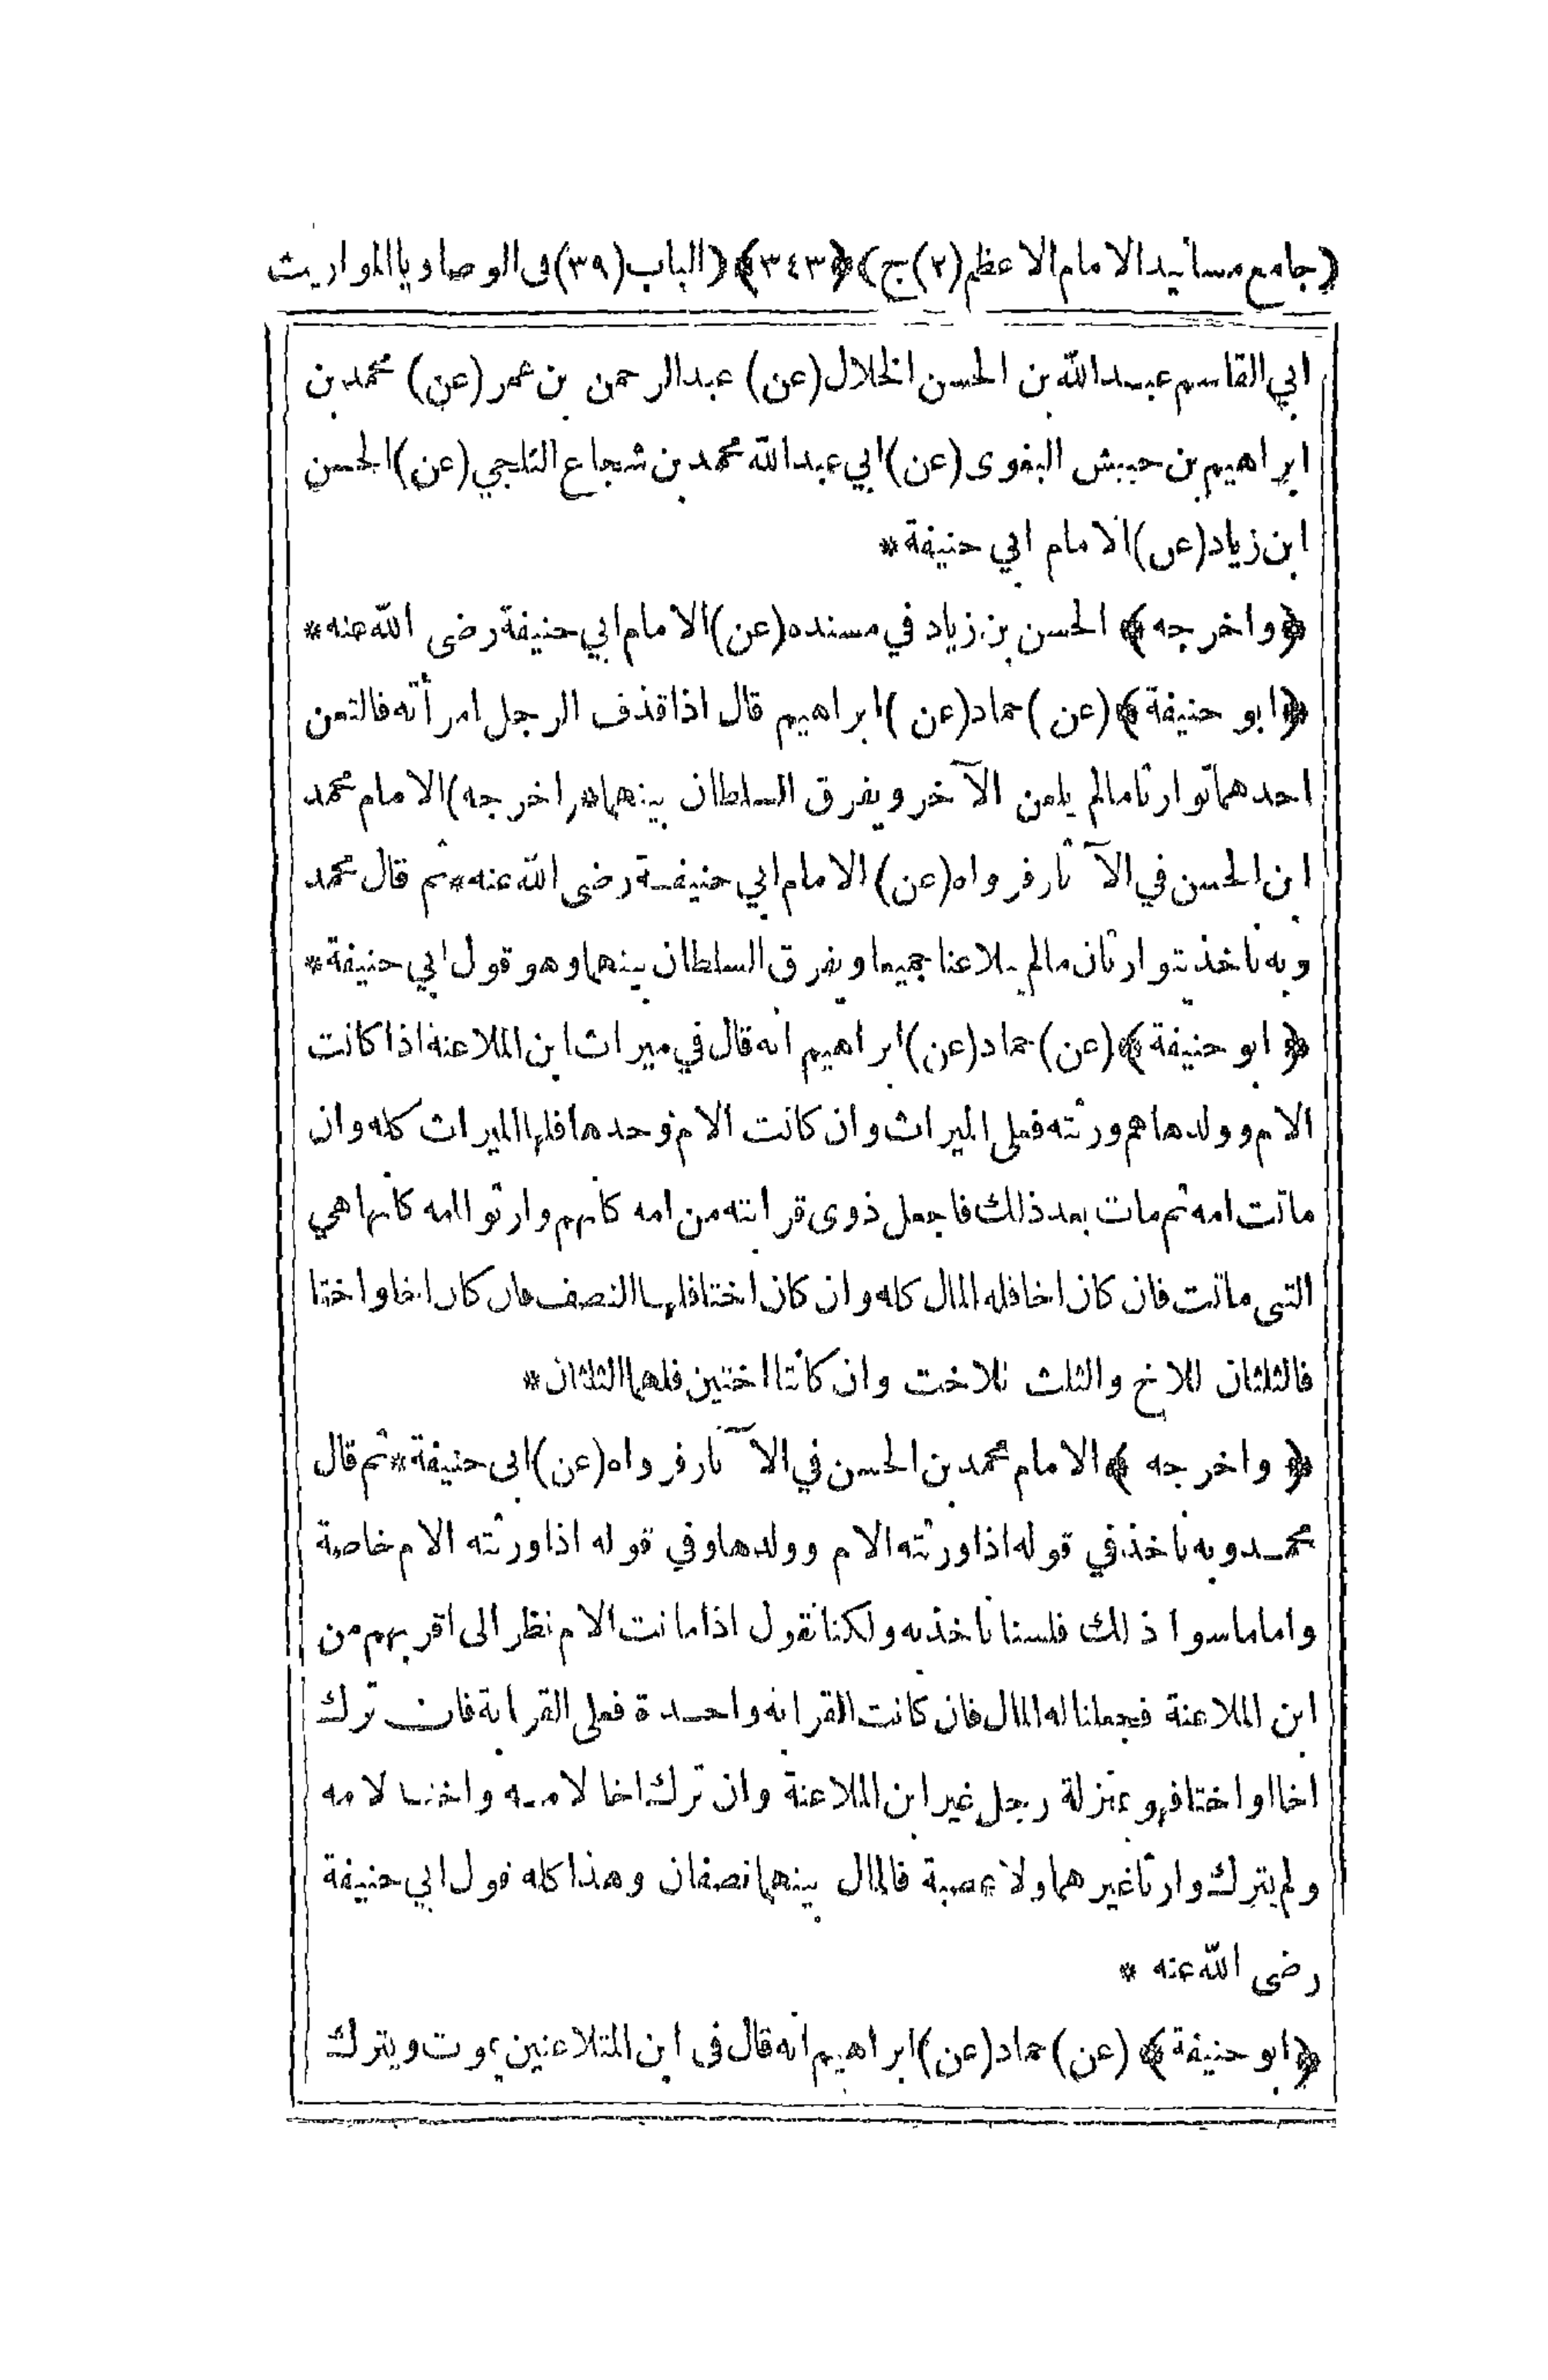 (جامع مسانيد الامام الاعظم (٢) ج) ﴿٣٤٣﴾ (الباب (٣٩) فى الوصاويا المواريث
ابي القاسم عبد الله بن الحسن الخلال (عن) عبد الرحمن بن عمر (عن) محمد بن
ابراهيم بن حبيش البغوى (عن) ابي عبد الله محمد بن شجاع الثلجي (عن) الحسن
ابن زياد (عن) الامام ابي حنيفة *
﴿واخرجه﴾ الحسن بن زياد في مسنده (عن) الامام ابي حنيفة رضى الله عنه *
﴿ابو حنيفة﴾ (عن) حماد (عن) ابراهيم قال اذا قذف الرجل امرأته فالتعن
احدهما توارثا مالم يلعن الآخر ويفرق السلطان بينهما * (اخرجه) الامام محمد
ابن الحسن في الآثار فرواه (عن) الامام ابي حنيفة رضى الله عنه * ثم قال محمد
وبه ناخذ يتوارثان مالم يلاعنا جميعا ويفرق السلطان بينهما وهو قول ابي حنيفة *
﴿ابو حنيفة﴾ (عن) حماد (عن) ابراهيم انه قال في ميراث ابن الملاعنة اذا كانت
الام وولدها هم ورثته فعلى الميراث وان كانت الام وحدها فلها الميراث كله وان
ماتت امه ثم مات بعد ذلك فاجعل ذوى قرابته من امه كانهم وارثوا امه كانها هي
التى ماتت فان كان اخا فله المال كله وان كان اختا فلها النصف فان كان اخا واختا
فالثلثان للاخ والثلث للاخت وان كانتا اختين فلهما الثلثان *
﴿واخرجه﴾ الامام محمد بن الحسن في الآثار فرواه (عن) ابى حنيفة * ثم قال
محمد وبه ناخذ في قوله اذا ورثته الام وولدها وفي قوله اذا ورثته الام خاصة
واما ماسوا ذلك فلسنا ناخذ به ولكنا نقول اذا ماتت الام نظر الى اقربهم من
ابن الملاعنة فجعلنا له المال فان كانت القرابة واحدة فعلى القرابة فان ترك
اخا او اختا فهو بمنزلة رجل غير ابن الملاعنة وان ترك اخا لامه واختا لامه
ولم يترك وارثا غيرهما ولا عصبة فالمال بينهما نصفان وهذا كله قول ابي حنيفة
رضى الله عنه *
﴿ابو حنيفة﴾ (عن) حماد (عن) ابراهيم انه قال فى ابن المتلاعنين يموت ويترك